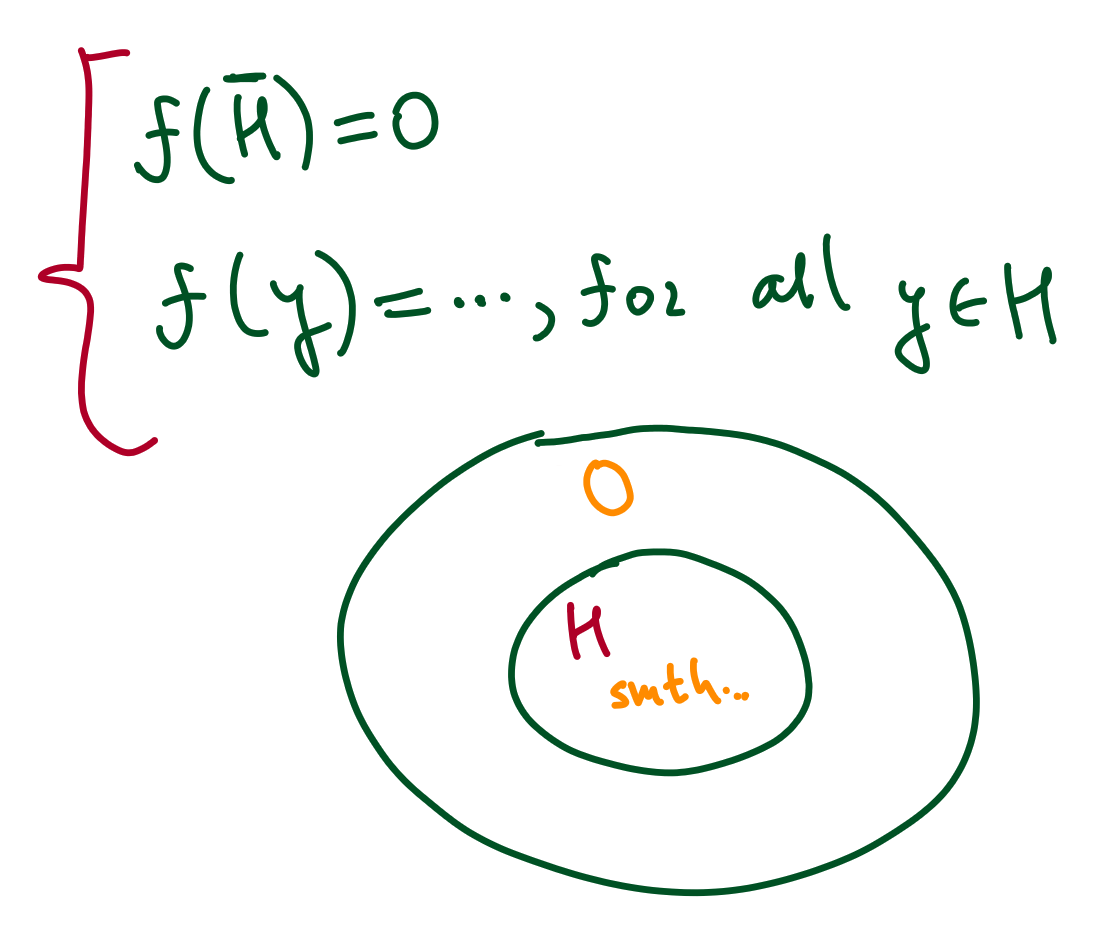 f(H̅)=0
f(y)=..., for all y∈H
0
H
smth...